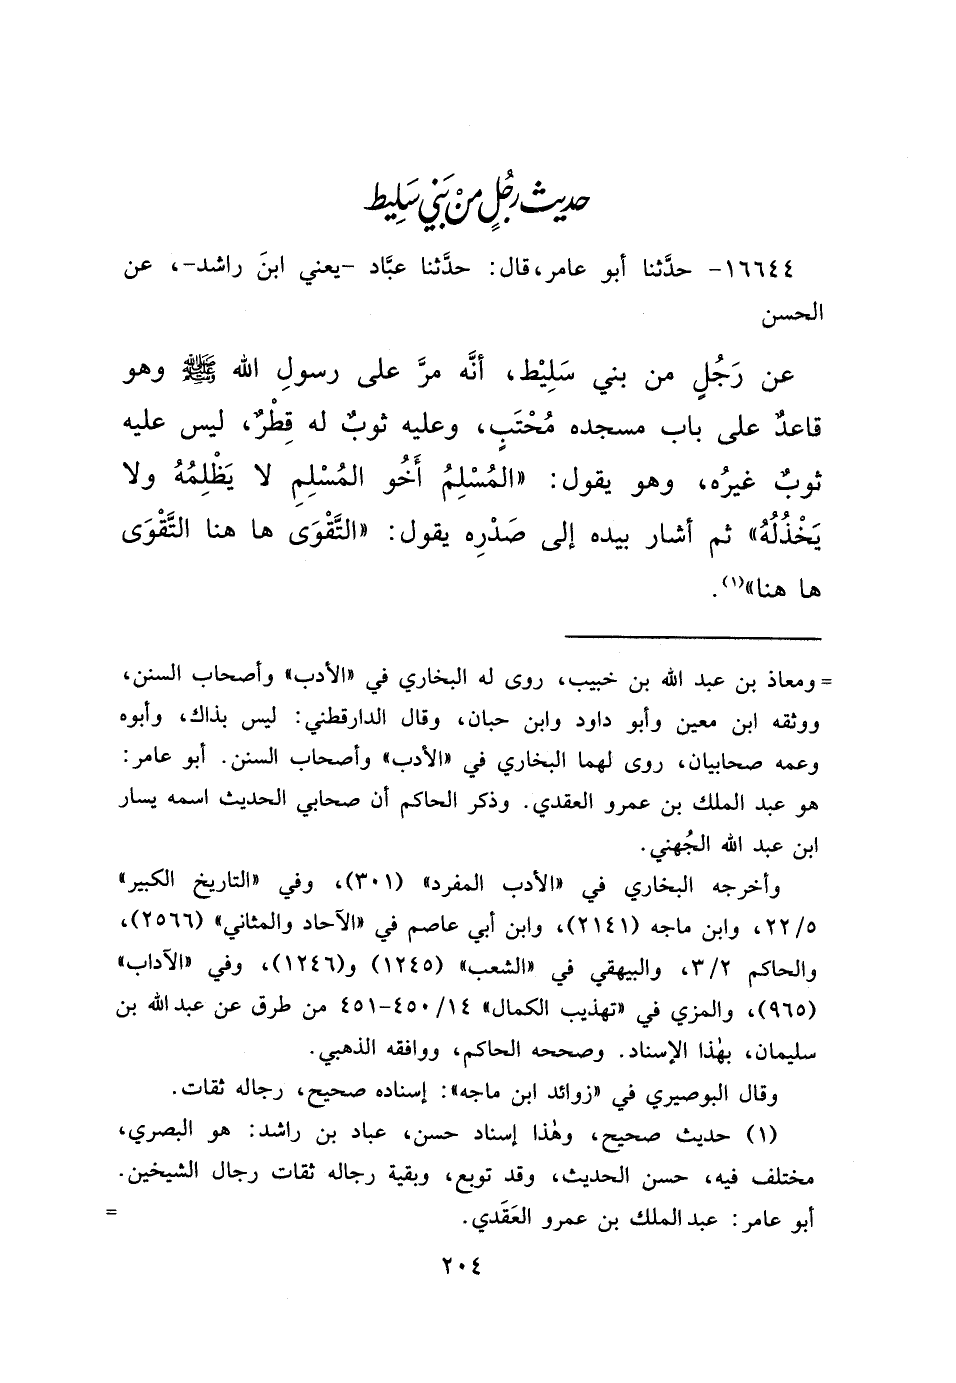 حديث رجُلٍ منْ بَني سَلِيط
١٦٦٤٤- حدَّثنا أبو عامر، قال: حدَّثنا عبَّاد -يعني ابنَ راشد-، عن
الحسن
عن رَجُلٍ من بني سَلِيْط، أنَّه مرَّ على رسولِ الله ﷺ وهو
قاعدٌ على باب مسجده مُحْتَبٍ، وعليه ثوبٌ له قِطْرٌ، ليس عليه
ثوبٌ غيرُه، وهو يقول: «المُسْلِمُ أَخُو المُسْلِمِ لا يَظْلِمُهُ ولا
يَخْذُلُهُ» ثم أشار بيده إلى صَدْرِه يقول: «التَّقْوَى ها هنا التَّقْوَى
ها هنا»(١).
= ومعاذ بن عبد الله بن خبيب، روى له البخاري في «الأدب» وأصحاب السنن،
ووثقه ابن معين وأبو داود وابن حبان، وقال الدارقطني: ليس بذاك، وأبوه
وعمه صحابيان، روى لهما البخاري في «الأدب» وأصحاب السنن. أبو عامر:
هو عبد الملك بن عمرو العقدي. وذكر الحاكم أن صحابي الحديث اسمه يسار
ابن عبد الله الجُهني.
وأخرجه البخاري في «الأدب المفرد» (٣٠١)، وفي «التاريخ الكبير»
٢٢/٥، وابن ماجه (٢١٤١)، وابن أبي عاصم في «الآحاد والمثاني» (٢٥٦٦)،
والحاكم ٣/٢، والبيهقي في «الشعب» (١٢٤٥) و(١٢٤٦)، وفي «الآداب»
(٩٦٥)، والمزي في «تهذيب الكمال» ٤٥٠/١٤-٤٥١ من طرق عن عبد الله بن
سليمان، بهٰذا الإسناد. وصححه الحاكم، ووافقه الذهبي.
وقال البوصيري في «زوائد ابن ماجه»: إسناده صحيح، رجاله ثقات.
(١) حديث صحيح، وهٰذا إسناد حسن، عباد بن راشد: هو البصري،
مختلف فيه، حسن الحديث، وقد توبع، وبقية رجاله ثقات رجال الشيخين.
أبو عامر: عبد الملك بن عمرو العَقَدي. =
٢٠٤